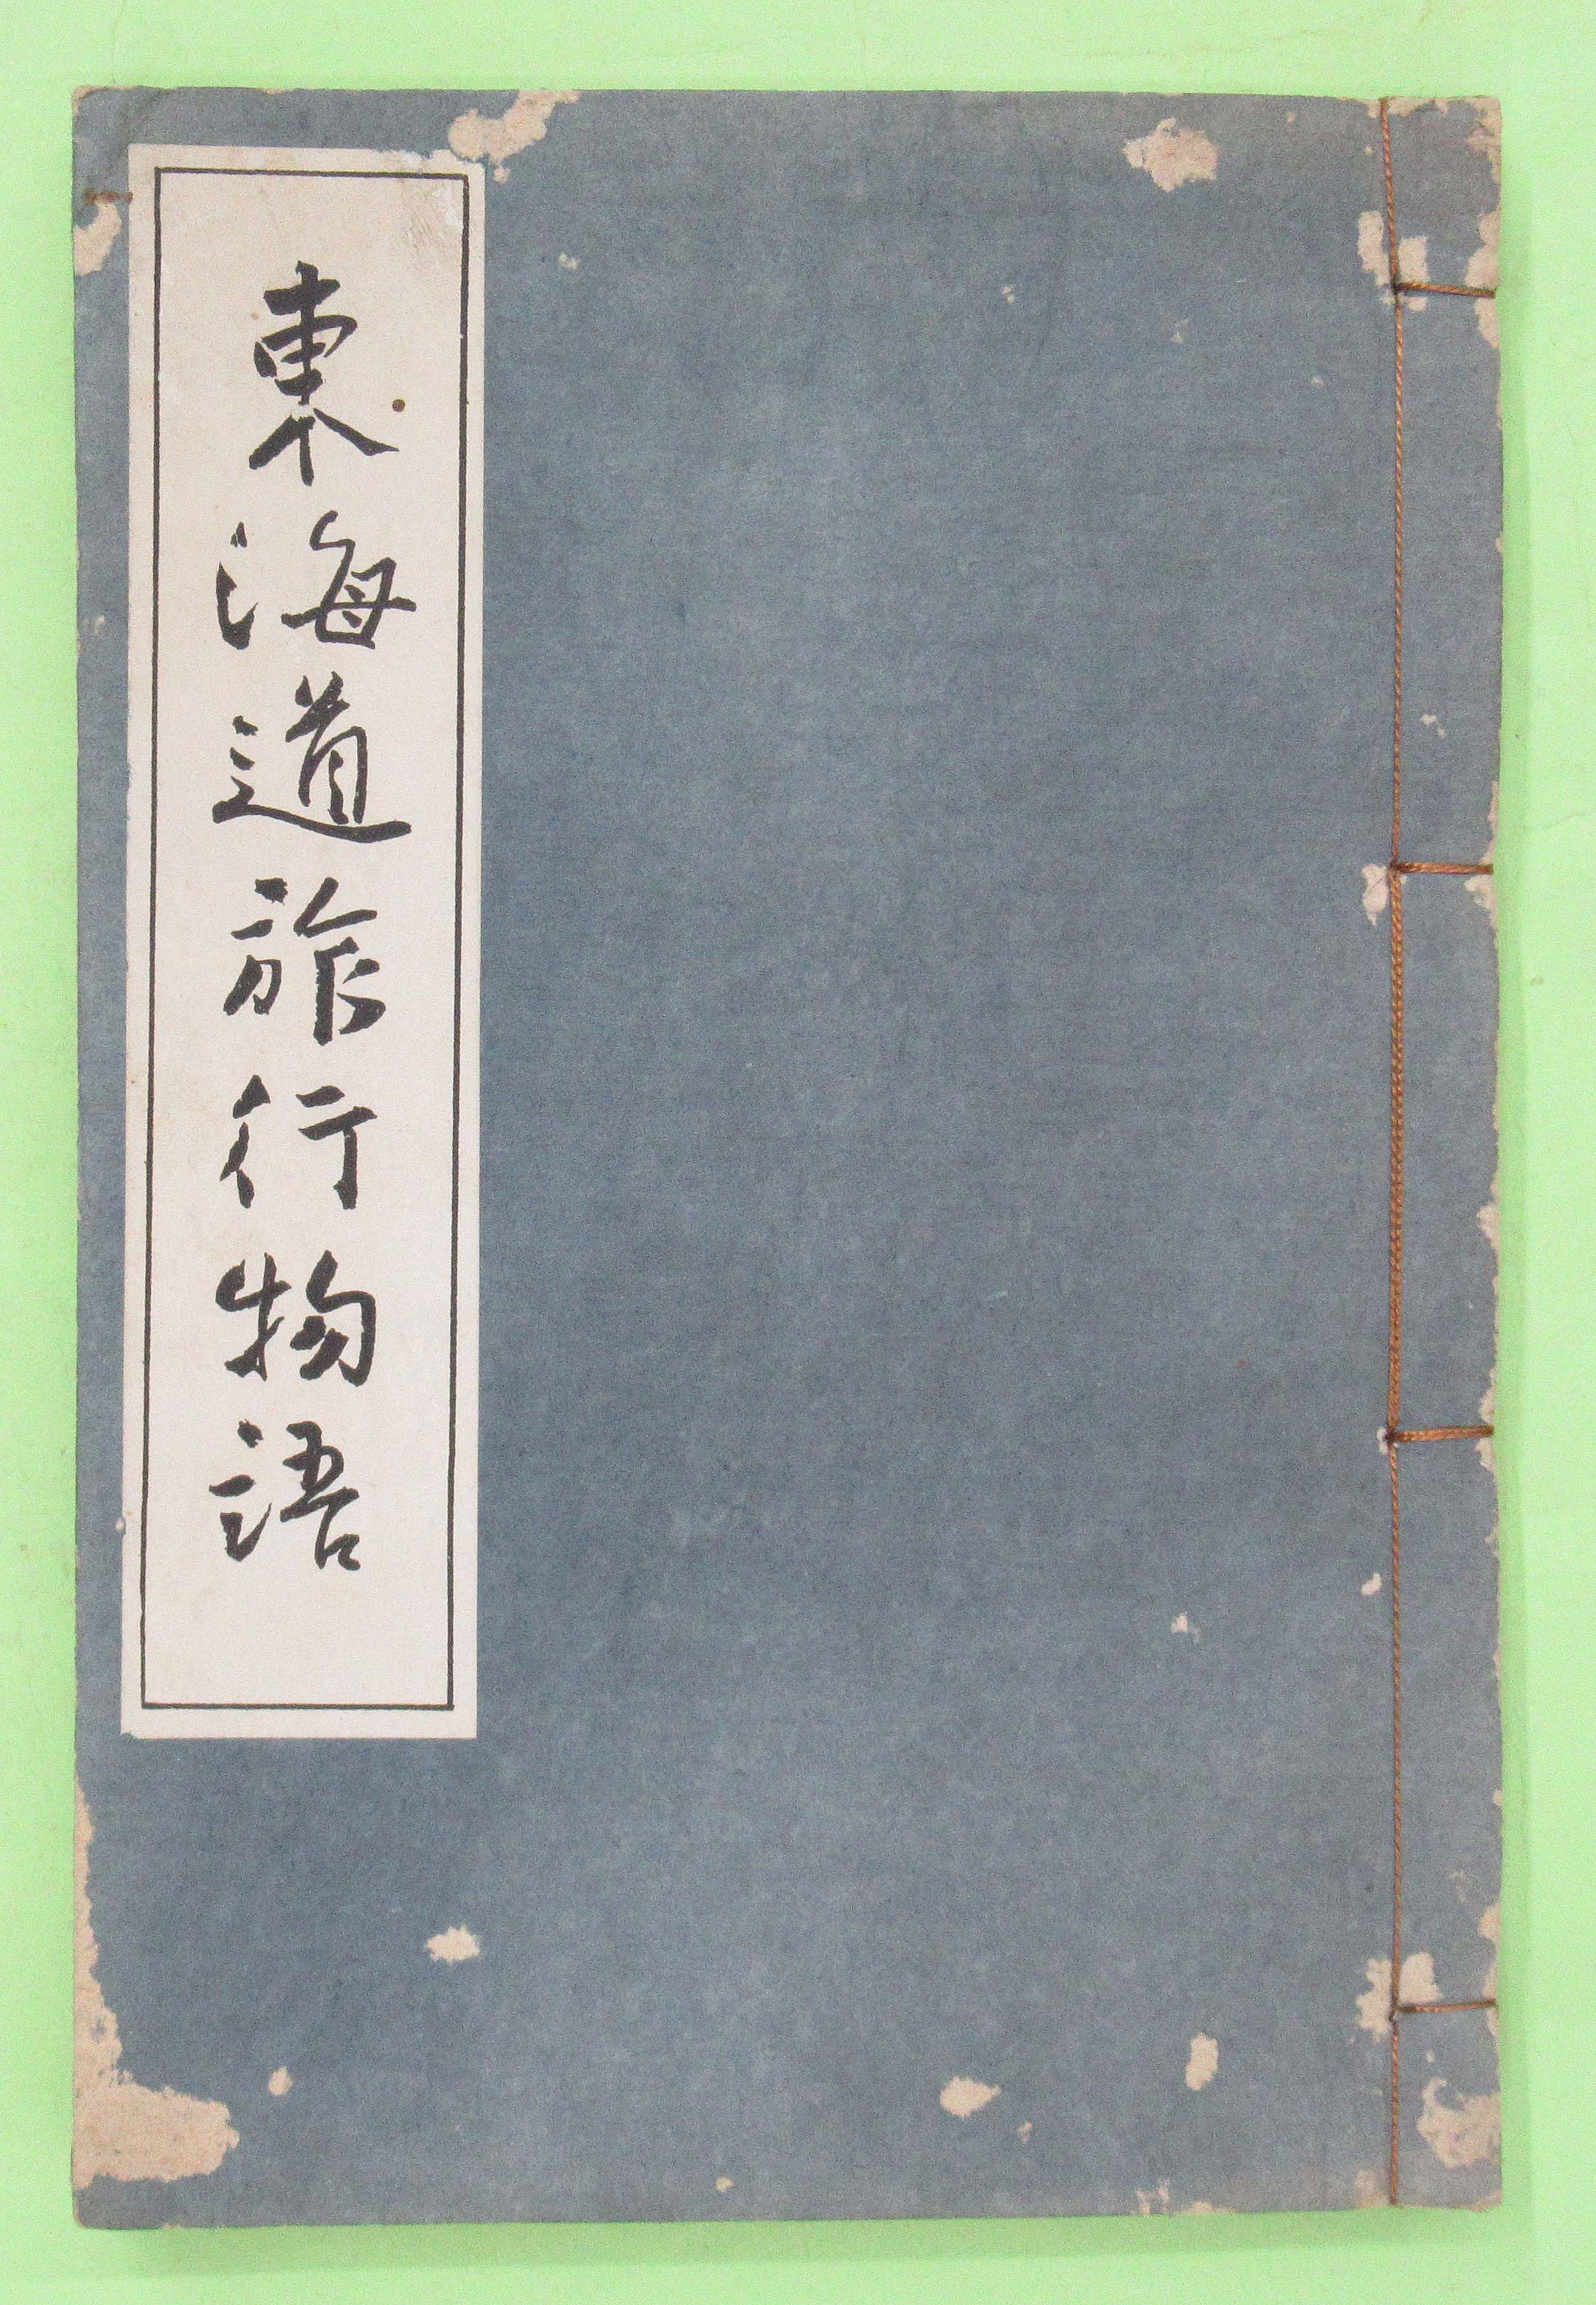 東海道旅行物語